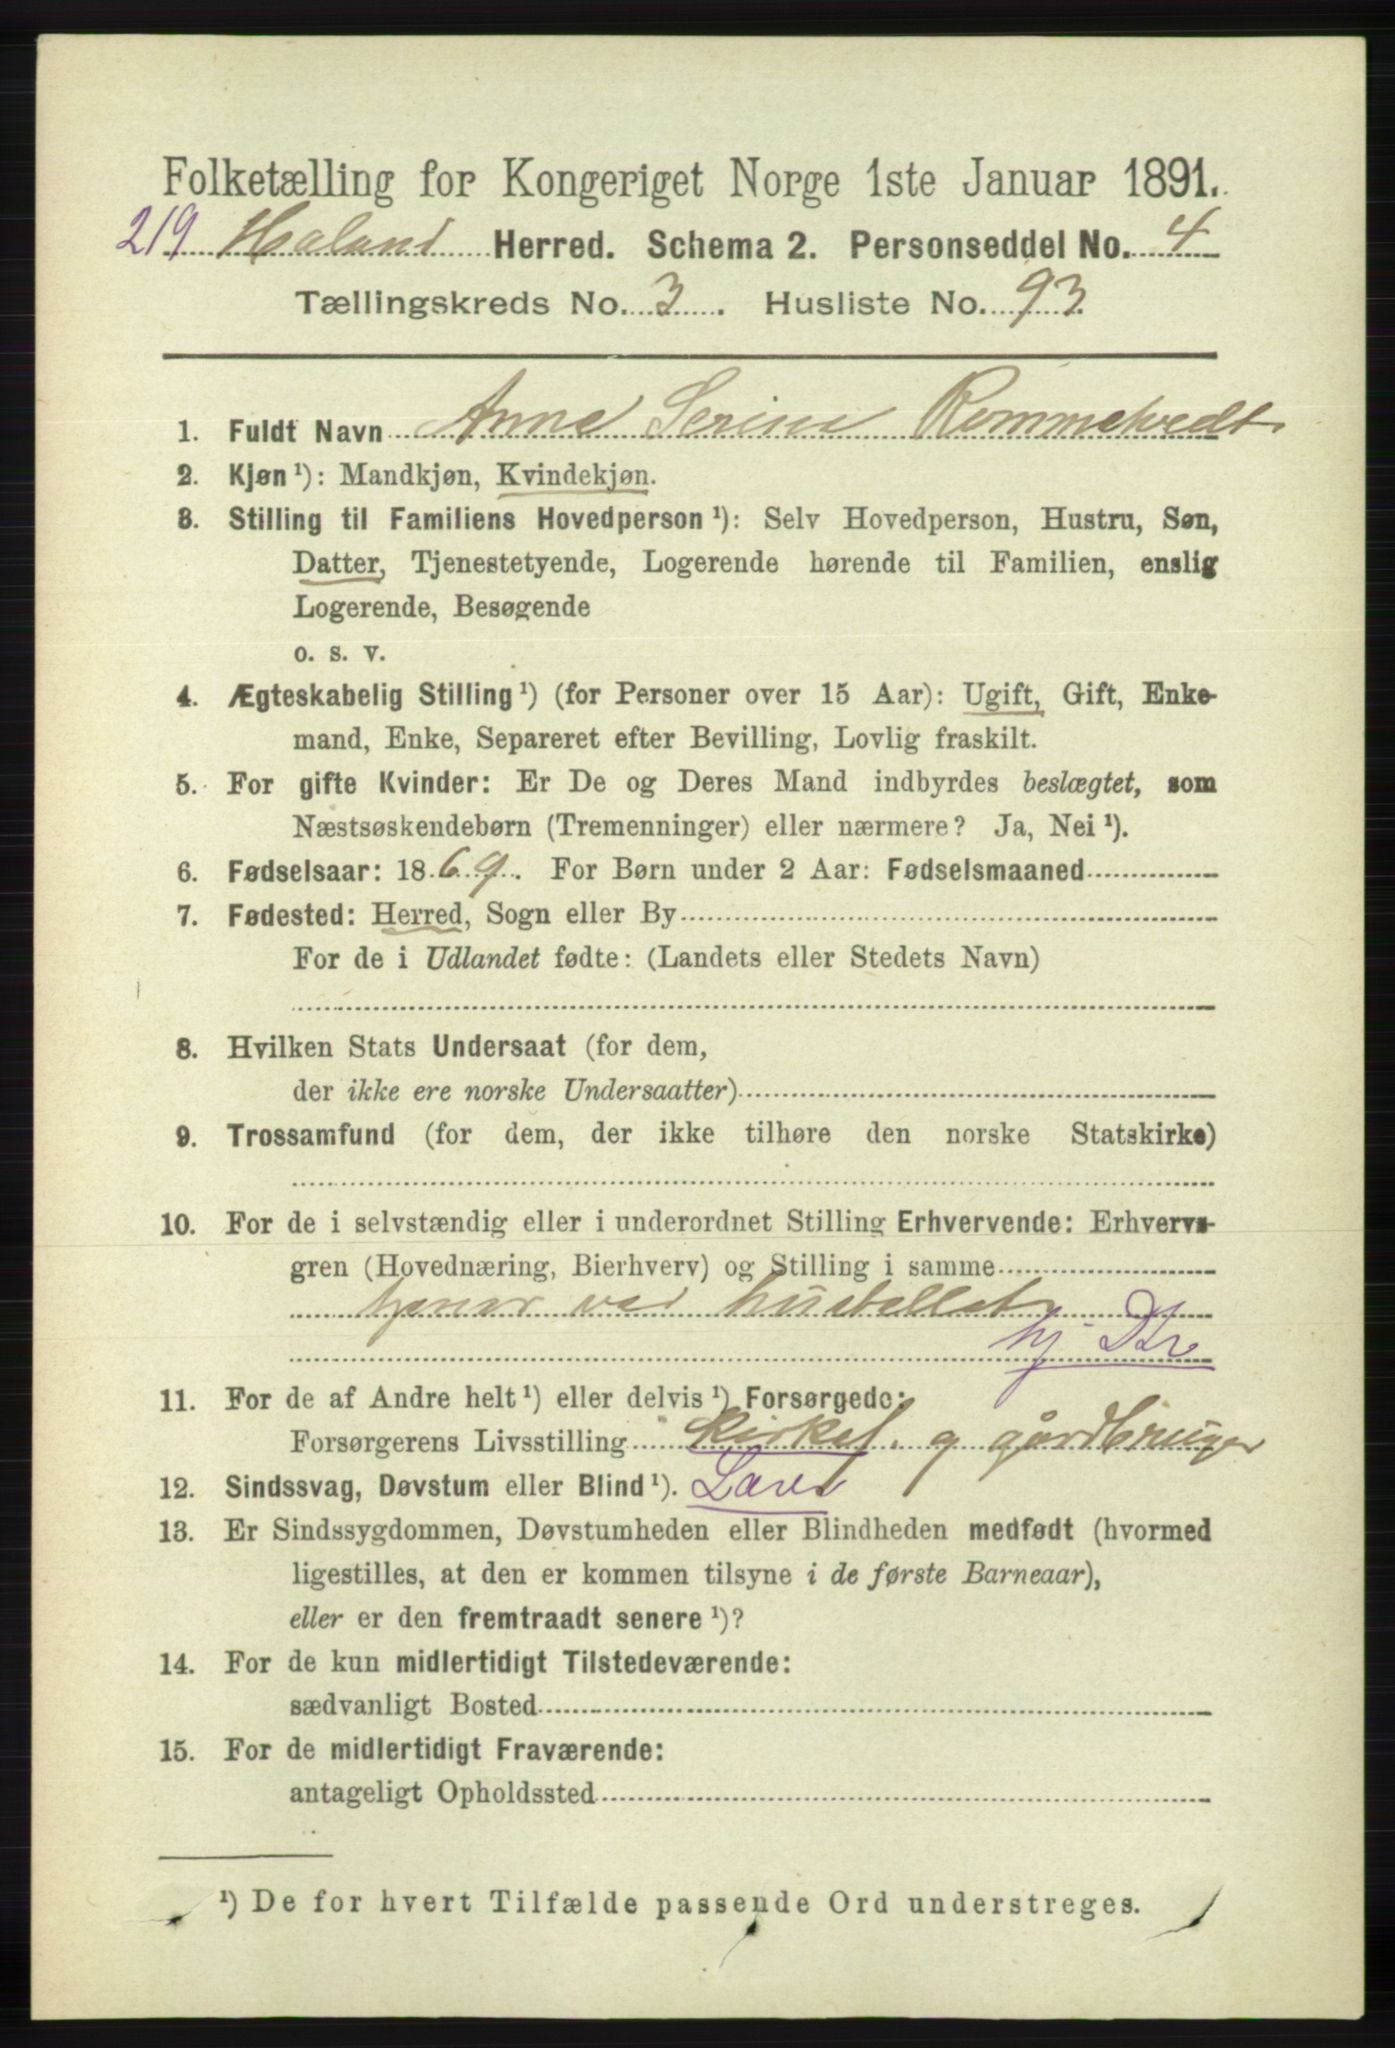 Folketælling for Kongeriget Norge 1ste Januar 1891.
219 Haaland Herred. Schema 2. Personseddel No. 4
Tællingskreds No. 3. Husliste No. 93
1. Fuldt Navn Anne Serine Rommetvedt
2. Kjøn ¹): Mandkjøn, Kvindekjøn.
3. Stilling til Familiens Hovedperson ¹): Selv Hovedperson, Hustru, Søn,
Datter, Tjenestetyende, Logerende hørende til Familien, enslig
Logerende, Besøgende
o. s. v.
4. Ægteskabelig Stilling ¹) (for Personer over 15 Aar): Ugift, Gift, Enke-
mand, Enke, Separeret efter Bevilling, Lovlig fraskilt.
5. For gifte Kvinder: Er De og Deres Mand indbyrdes beslægtet, som
Næstsøskendebørn (Tremenninger) eller nærmere? Ja, Nei ¹).
6. Fødselsaar: 1869. For Børn under 2 Aar: Fødselsmaaned
7. Fødested: Herred, Sogn eller By
For de i Udlandet fødte: (Landets eller Stedets Navn)
8. Hvilken Stats Undersaat (for dem,
der ikke ere norske Undersaatter)
9. Trossamfund (for dem, der ikke tilhøre den norske Statskirke)
10. For de i selvstændig eller i underordnet Stilling Erhvervende: Erhvervs-
gren (Hovednæring, Bierhverv) og Stilling i samme
tjener ved hustellet
hj
11. For de af Andre helt ¹) eller delvis ¹) Forsørgede:
Forsørgerens Livsstilling kirket. g gårdbruger
12. Sindssvag, Døvstum eller Blind ¹).
13. Er Sindssygdommen, Døvstumheden eller Blindheden medfødt (hvormed
ligestilles, at den er kommen tilsyne i de første Barneaar),
eller er den fremtraadt senere ¹)?
14. For de kun midlertidigt Tilstedeværende:
sædvanligt Bosted
15. For de midlertidigt Fraværende:
antageligt Opholdssted
¹) De for hvert Tilfælde passende Ord understreges.